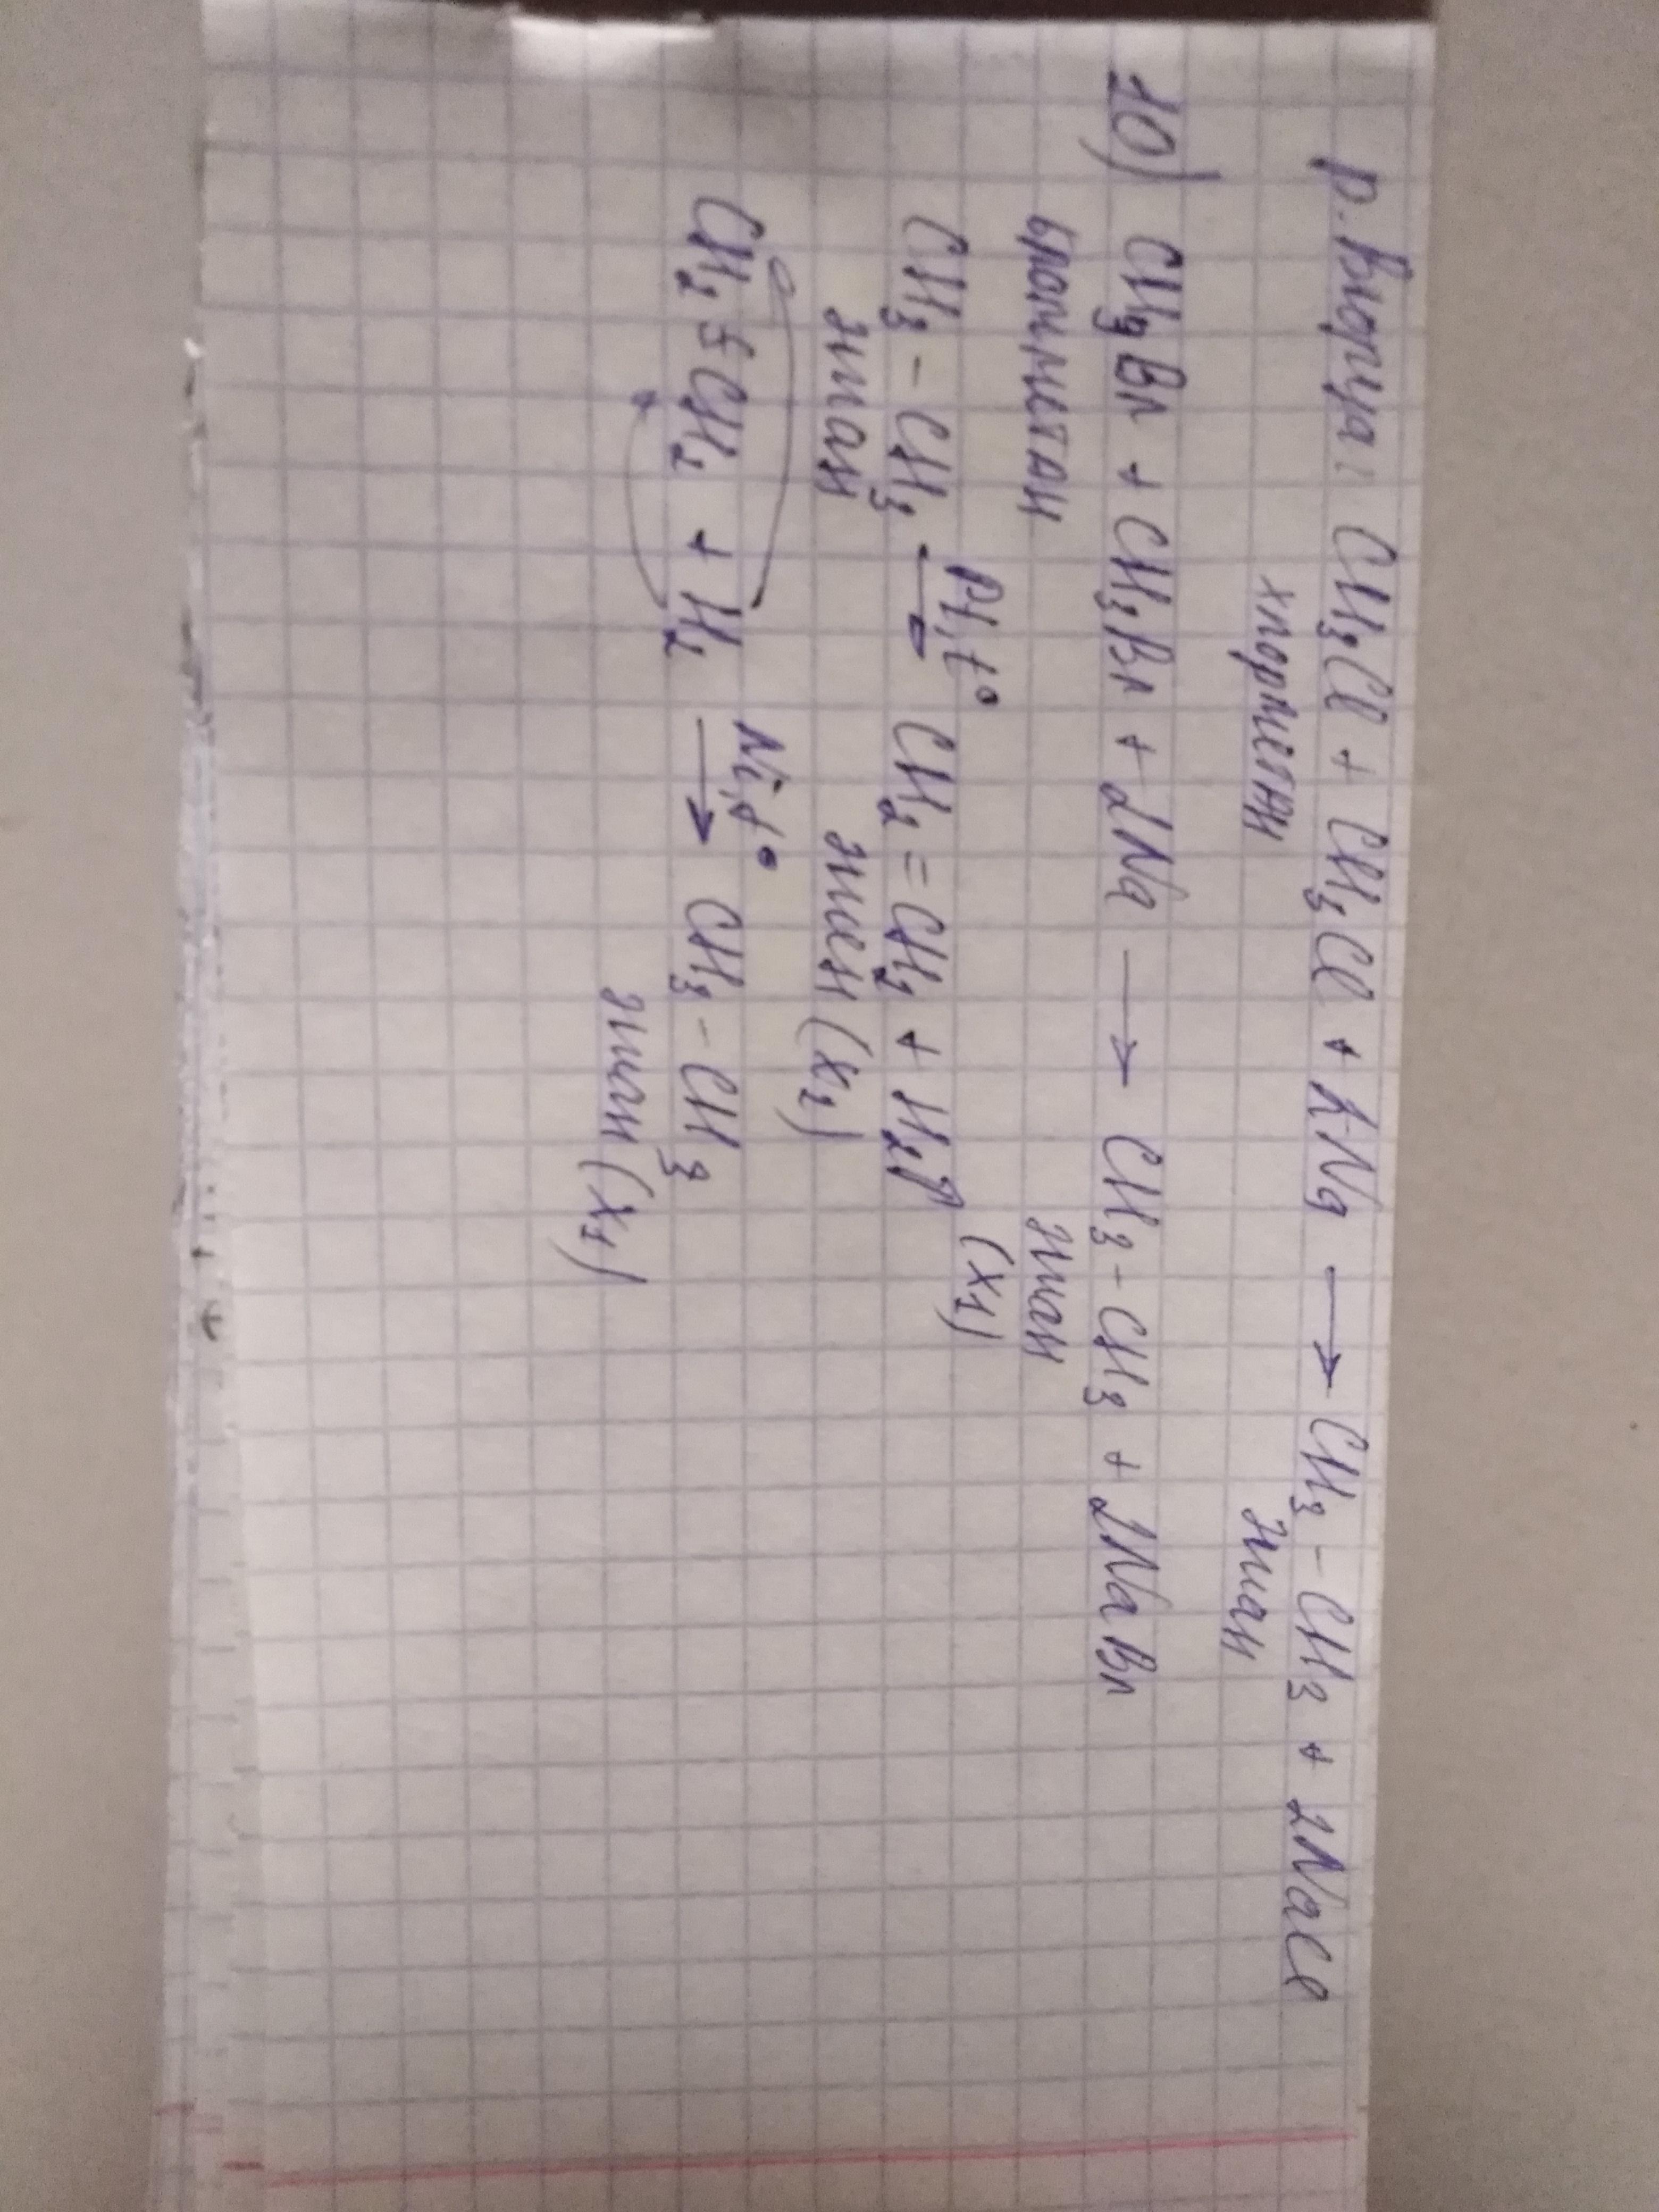 р. Вюрца: CH₃Cl + CH₃Cl + 2Na ⟶ CH₃ – CH₃ + 2NaCl
хлорметан этан
10) CH₃Br + CH₃Br + 2Na ⟶ CH₃ – CH₃ + 2NaBr
бромметан этан
(x₁)
Pt, t°
CH₃ – CH₃ ⟶ CH₂ = CH₂ + H₂↑
этан этен (x₂)
Ni, t°
CH₂ = CH₂ + H₂ ⟶ CH₃ – CH₃
этан (x₁)